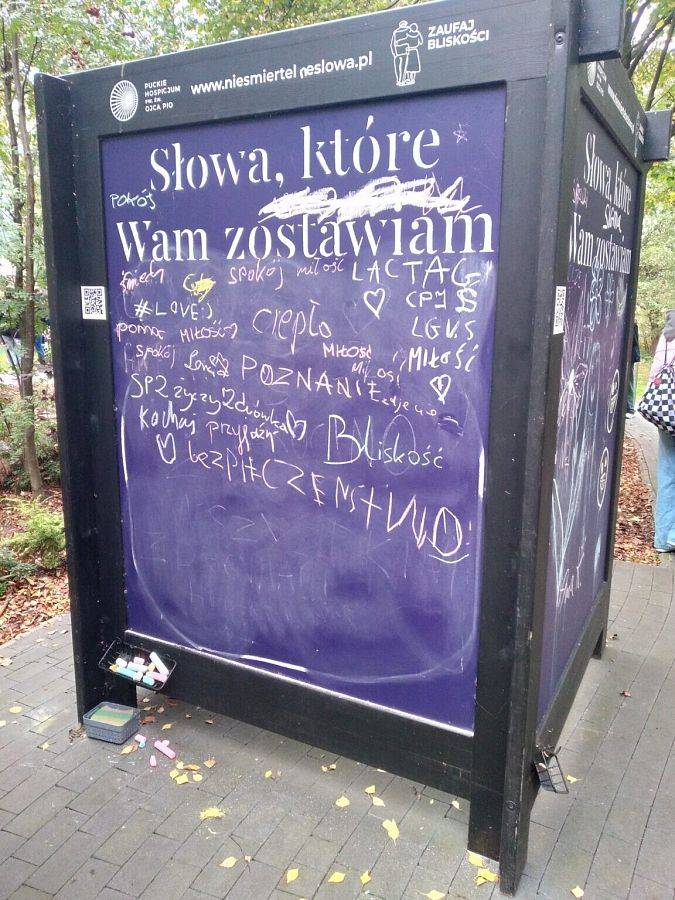 PUCKIE
HOSPICJUM
PW. ŚW.
OJCA PIO
www.niesmiertelneslowa.pl
ZAUFAJ
BLISKOŚCI
Słowa, które
POKÓJ
Wam zostawiam
śmiech
spokój miłość LACTAG
#LOVE:) CPJ$
ciepło LGVS
pomoc MIŁOŚĆ
MIŁOŚĆ MIŁOŚĆ
spokój Love POZNANIE
SP2 życzy zdrówka
Kochaj przyjaźń Bliskość
bezpIECZEŃSTWO!
www.niesmiertel
Słowa, które
Wam zostawiam